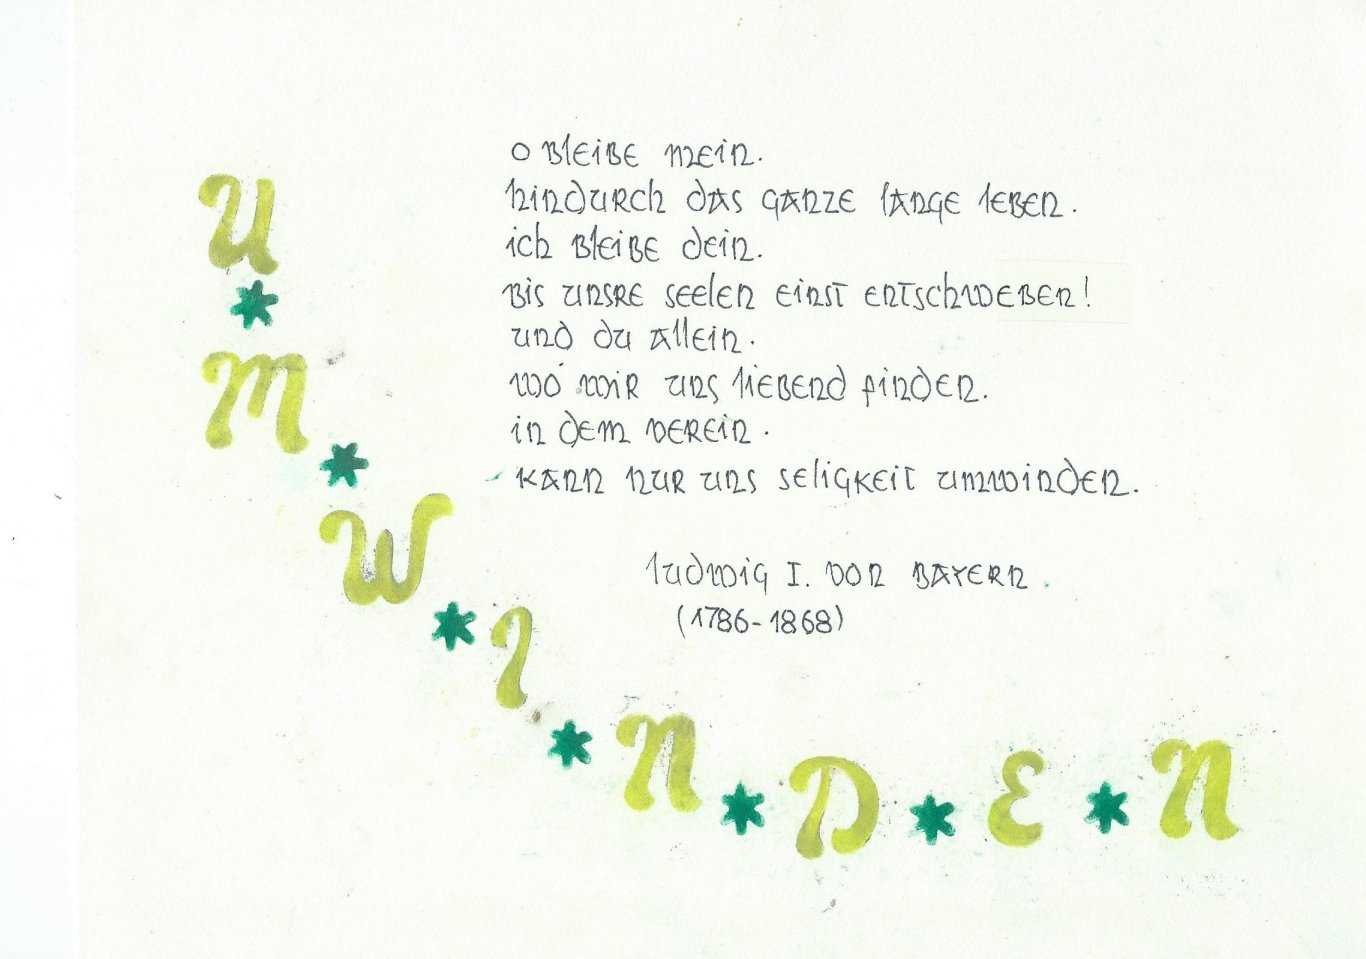 o bleibe mein.
hindurch das ganze lange leben.
ich bleibe dein.
bis unsre seelen einst entschweben!
und du allein.
wo wir uns liebend finden.
in dem verein.
kann nur uns seligkeit umwinden.
ludwig I. von bayern.
(1786-1868)
U*M*W*I*N*D*E*N